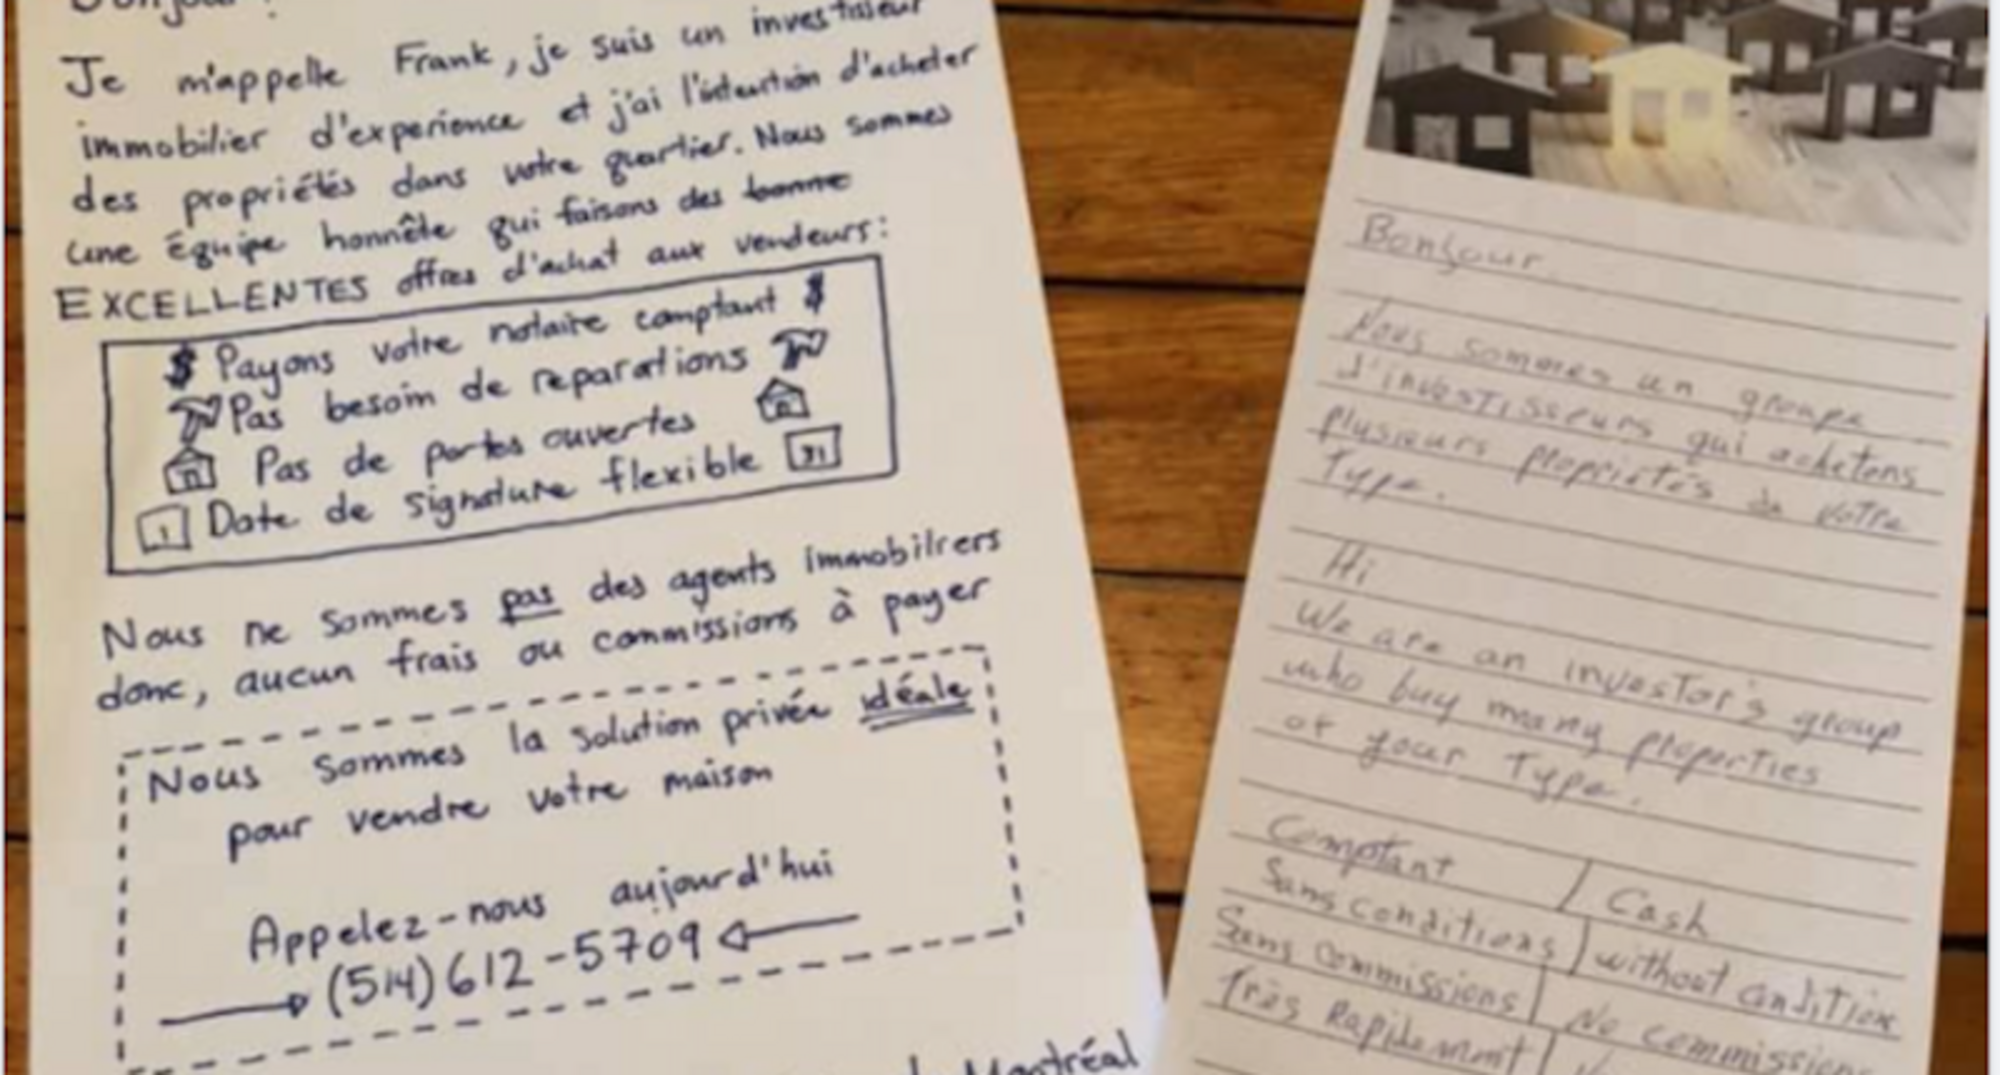 Bonjour!
Je m'appelle Frank, je suis un investisseur
immobilier d'experience et j'ai l'intention d'acheter
des propriétés dans votre quartier. Nous sommes
une équipe honnête qui faisons des bonne
EXCELLENTES offres d'achat aux vendeurs:
$ Payons votre notaire comptant $
Pas besoin de reparations
Pas de portes ouvertes
1 Date de signature flexible 31
Nous ne sommes pas des agents immobiliers
donc, aucun frais ou commissions à payer
Nous sommes la solution privée idéale
pour vendre votre maison
Appelez-nous aujourd'hui
(514) 612-5709
Montréal
Bonjour.
Nous sommes un groupe
d'investisseurs qui achetons
plusieurs propriétés de votre
Type.
Hi
We are an investor's group
who buy many properties
of your Type.
Comptant / Cash
Sans conditions / without condition
Sans commissions / No commissions
Très Rapidement /